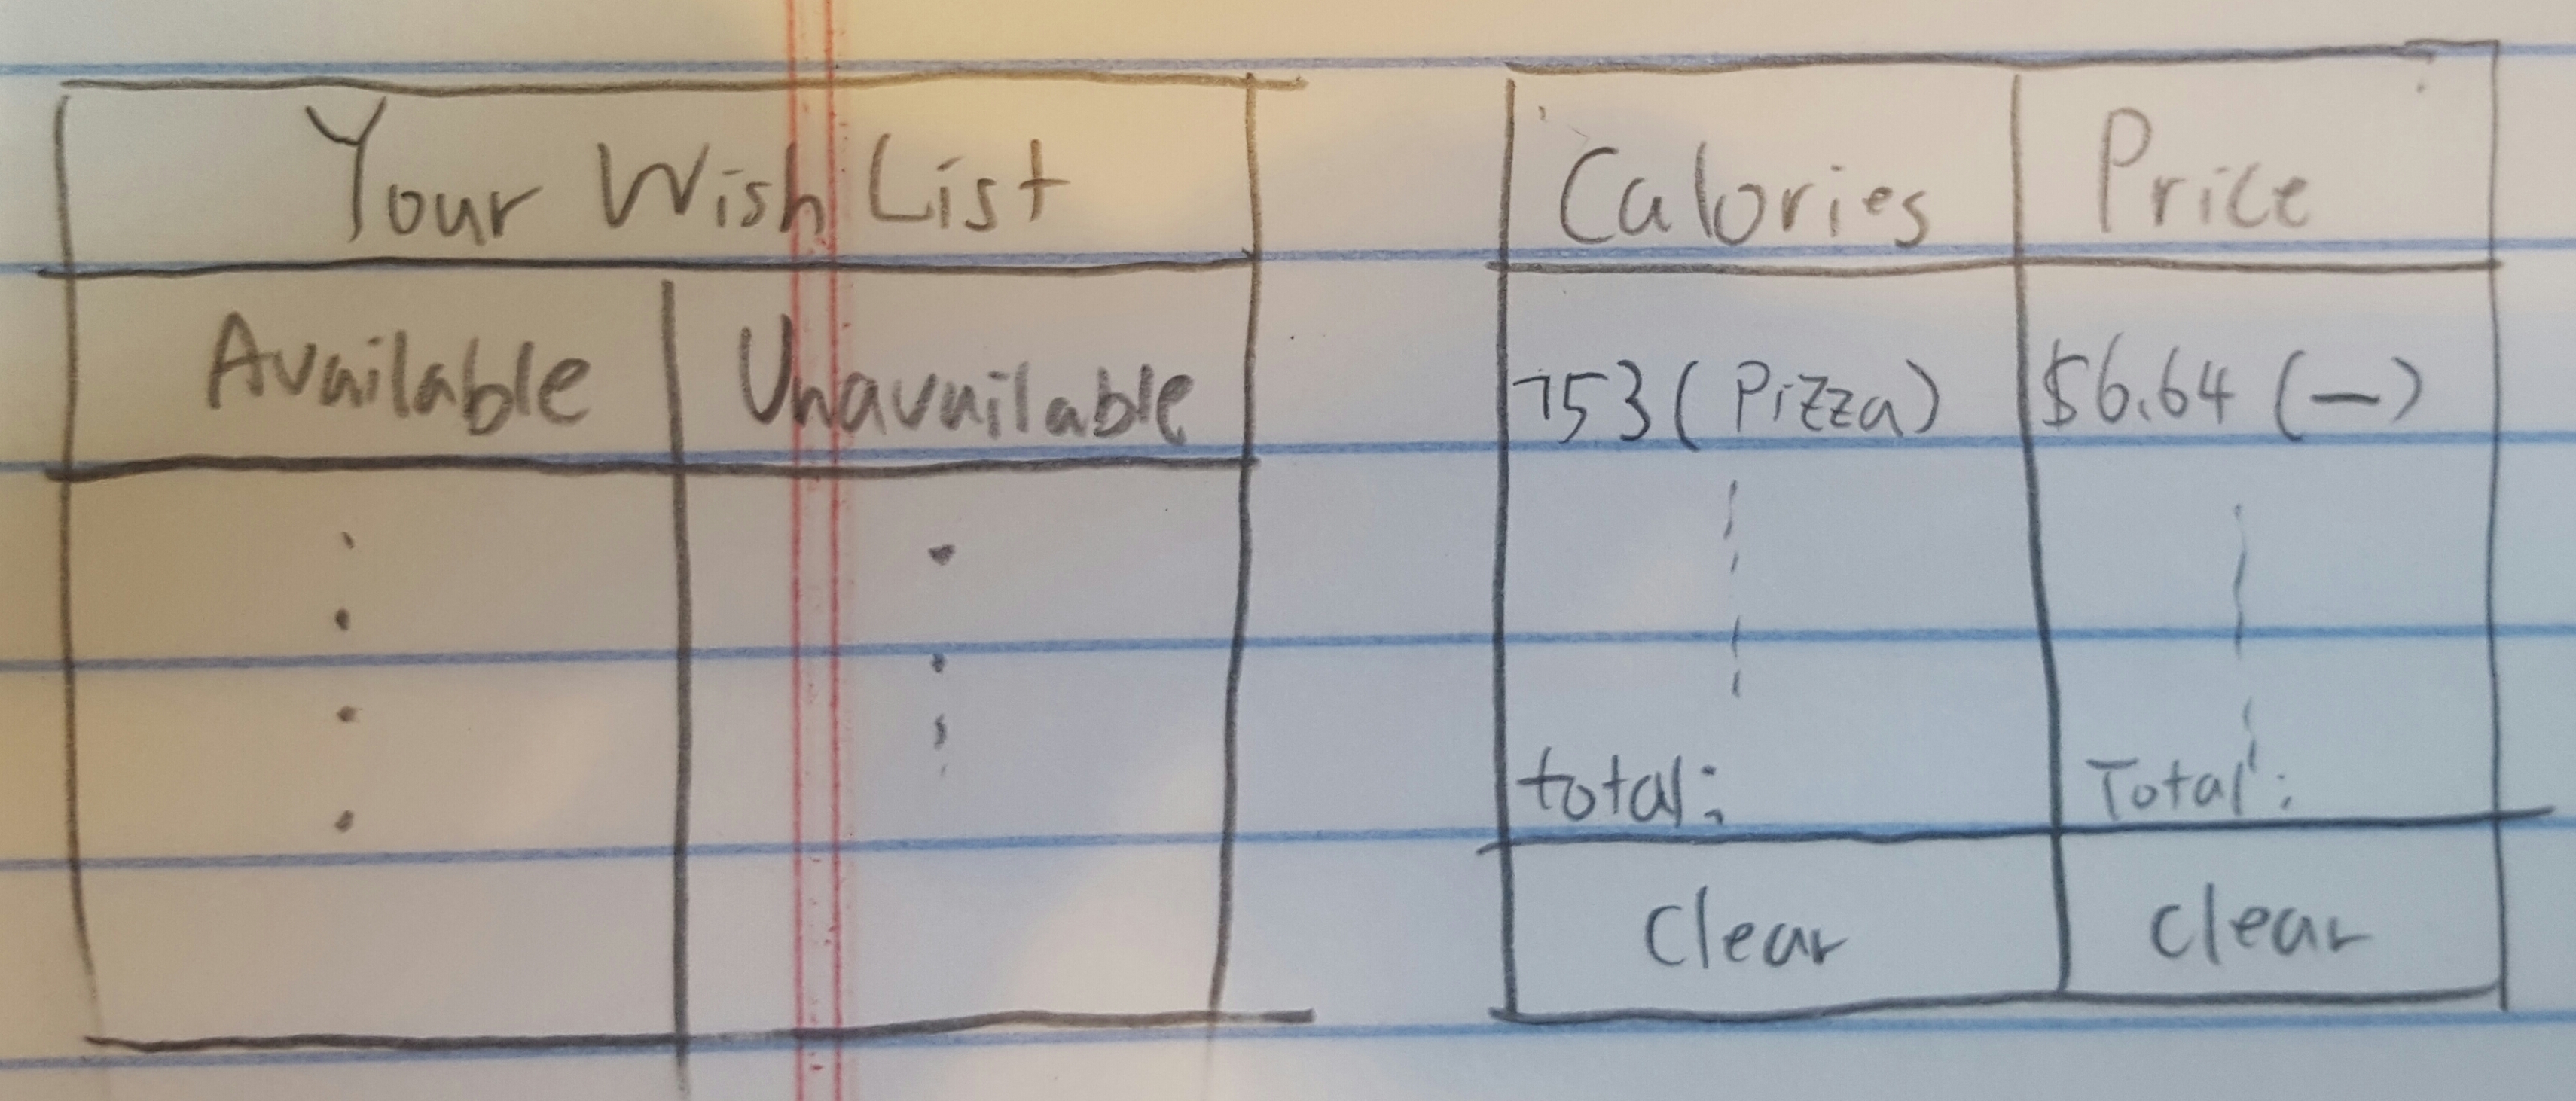 Your Wish List
Available
Unavailable
Calories
Price
753 (Pizza)
$6.64 (—)
total:
Total:
Clear
Clear